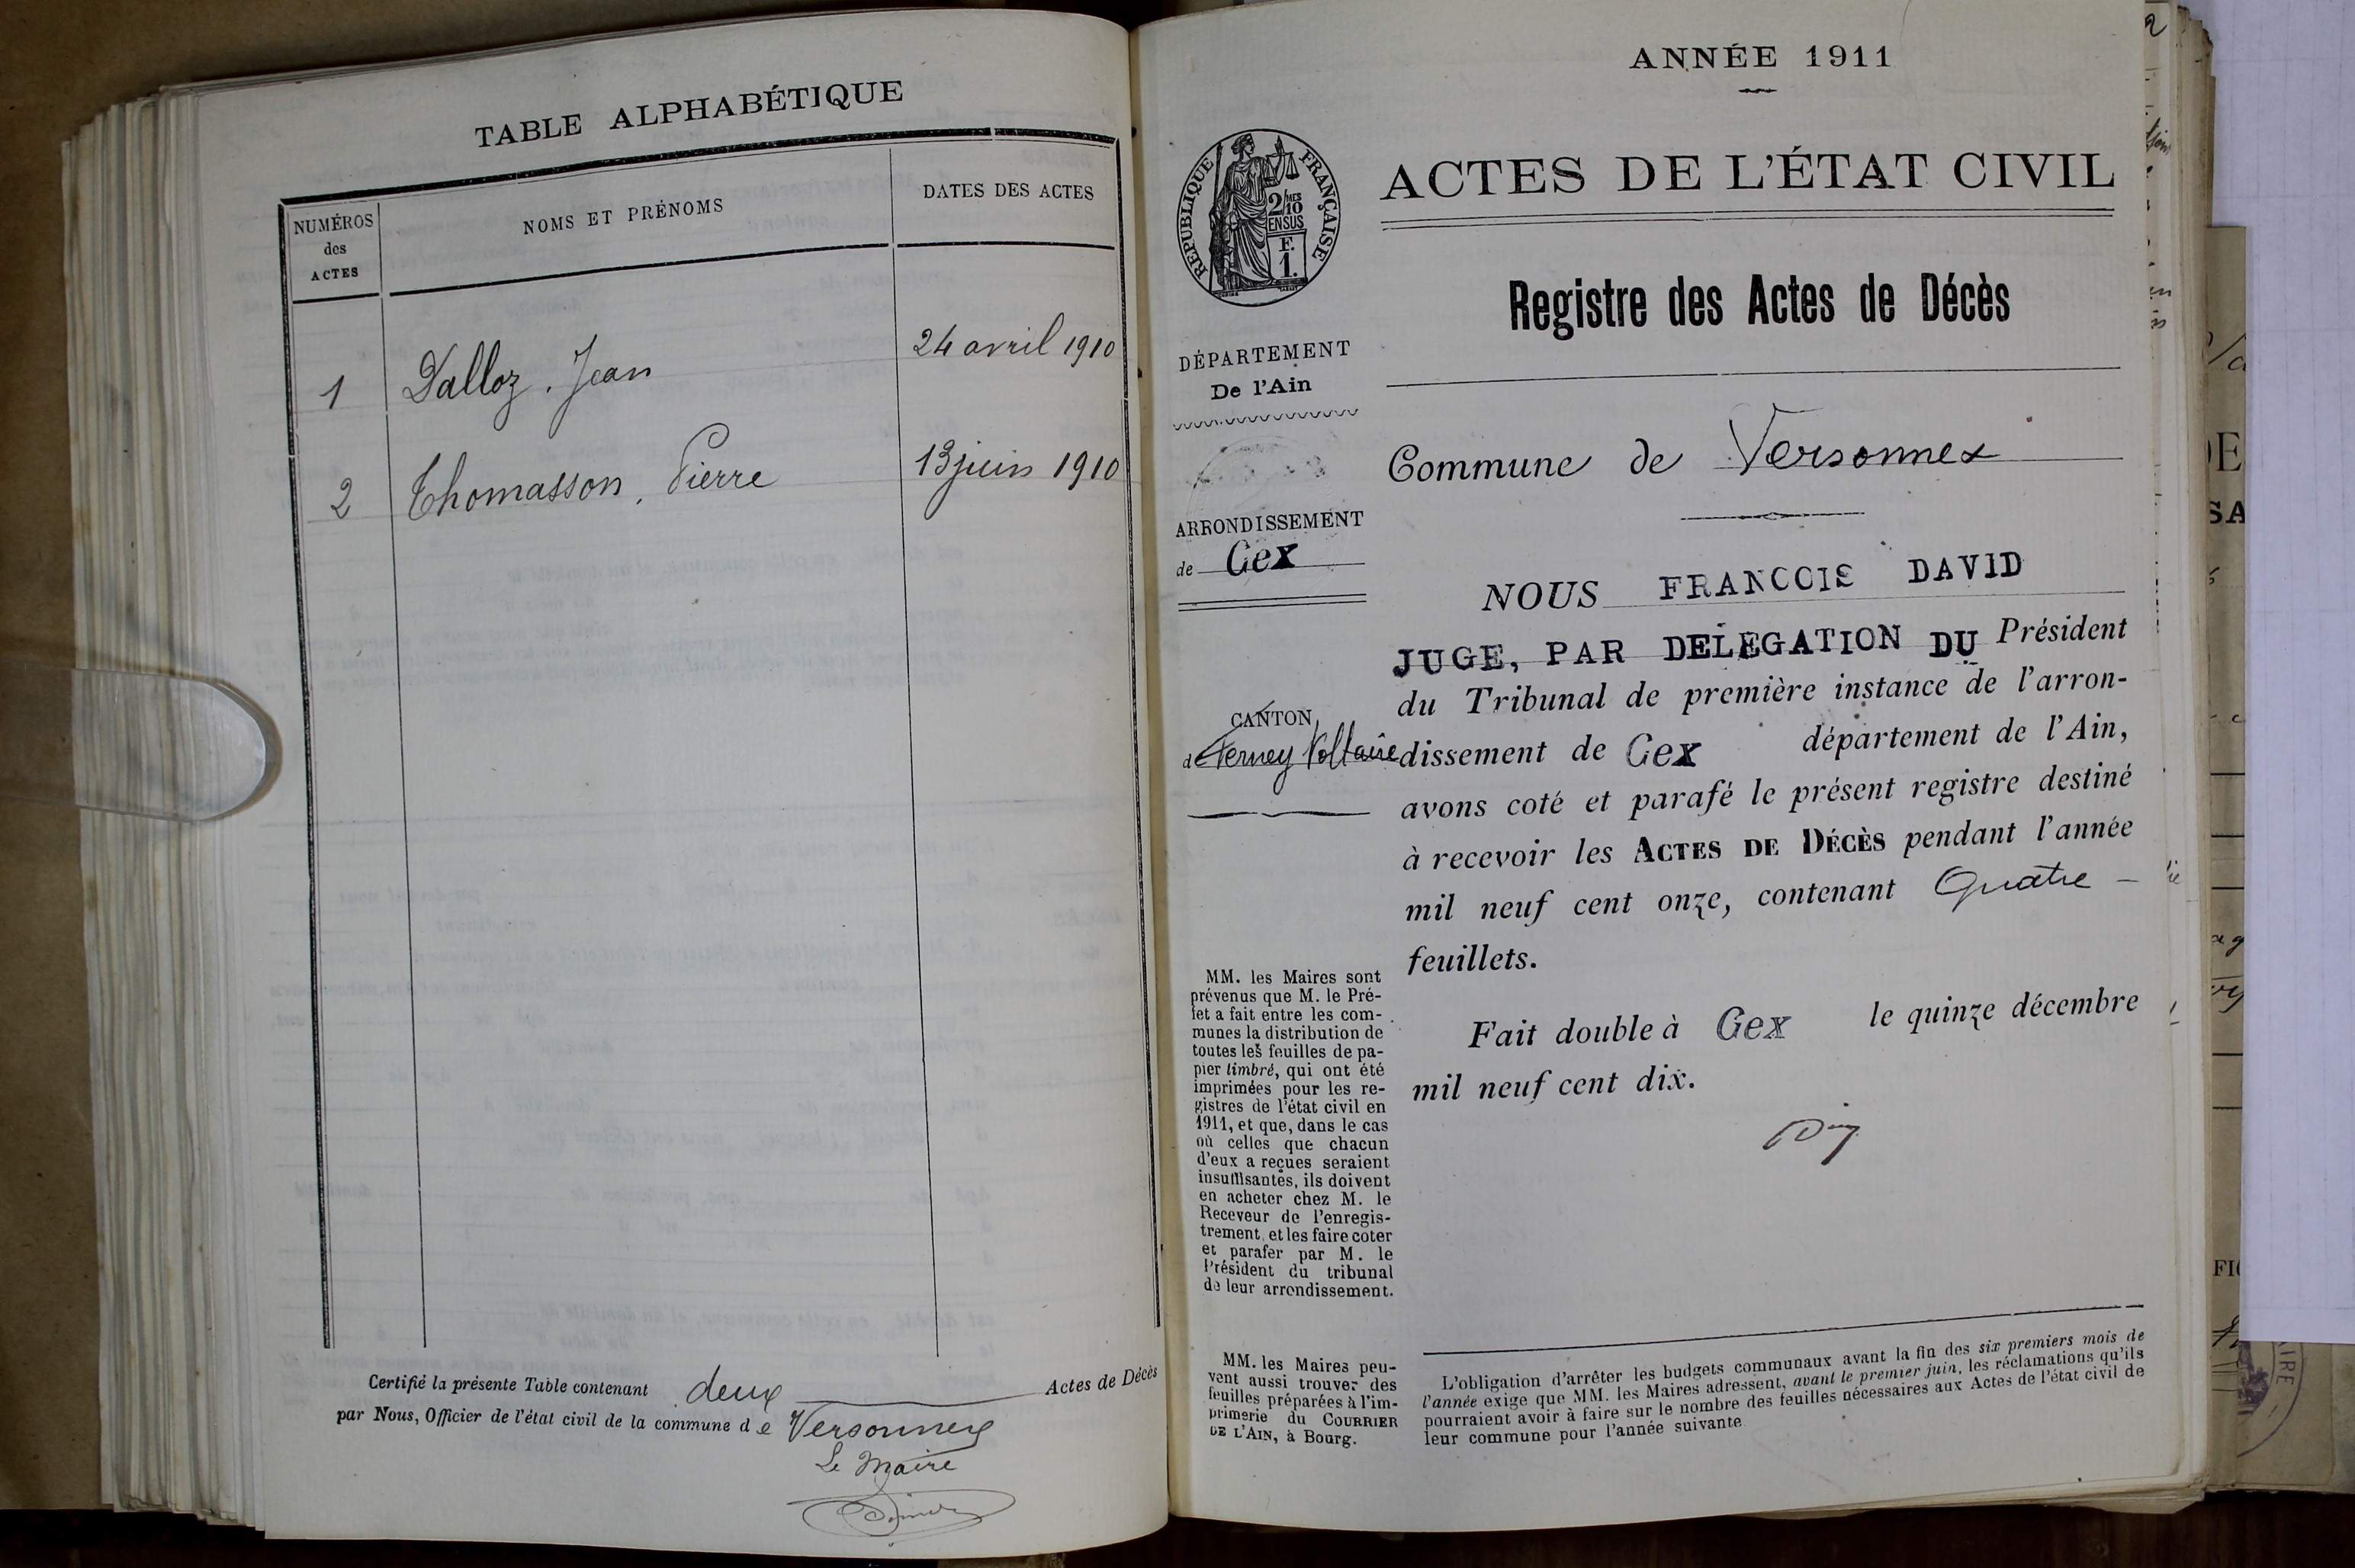 TABLE ALPHABÉTIQUE
NUMÉROS
des
ACTES
NOMS ET PRÉNOMS
DATES DES ACTES
1 Dalloz, Jean 24 avril 1910
2 Thomasson, Pierre 13 juin 1910
Certifié la présente Table contenant deux Actes de Décès
par Nous, Officier de l'état civil de la commune de Versonnex
Le Maire
ANNÉE 1911
RÉPUBLIQUE FRANÇAISE
2/MES
10
EN SUS
F.
1.
ACTES DE L'ÉTAT CIVIL
Registre des Actes de Décès
DÉPARTEMENT
De l'Ain
ARRONDISSEMENT
de Gex
CANTON
de Ferney Voltaire
Commune de Versonnex
NOUS FRANCOIS DAVID
JUGE, PAR DELEGATION DU Président
du Tribunal de première instance de l'arron-
dissement de Gex département de l'Ain,
avons coté et parafé le présent registre destiné
à recevoir les ACTES DE DÉCÈS pendant l'année
mil neuf cent onze, contenant Quatre –
feuillets.
Fait double à Gex le quinze décembre
mil neuf cent dix.
MM. les Maires sont
prévenus que M. le Pré-
fet a fait entre les com-
munes la distribution de
toutes les feuilles de pa-
pier timbré, qui ont été
imprimées pour les re-
gistres de l'état civil en
1911, et que, dans le cas
où celles que chacun
d'eux a reçues seraient
insuffisantes, ils doivent
en acheter chez M. le
Receveur de l'enregis-
trement, et les faire coter
et parafer par M. le
Président du tribunal
de leur arrondissement.
MM. les Maires peu-
vent aussi trouver des
feuilles préparées à l'im-
primerie du COURRIER
DE L'AIN, à Bourg.
L'obligation d'arrêter les budgets communaux avant la fin des six premiers mois de
l'année exige que MM. les Maires adressent, avant le premier juin, les réclamations qu'ils
pourraient avoir à faire sur le nombre des feuilles nécessaires aux Actes de l'état civil de
leur commune pour l'année suivante.